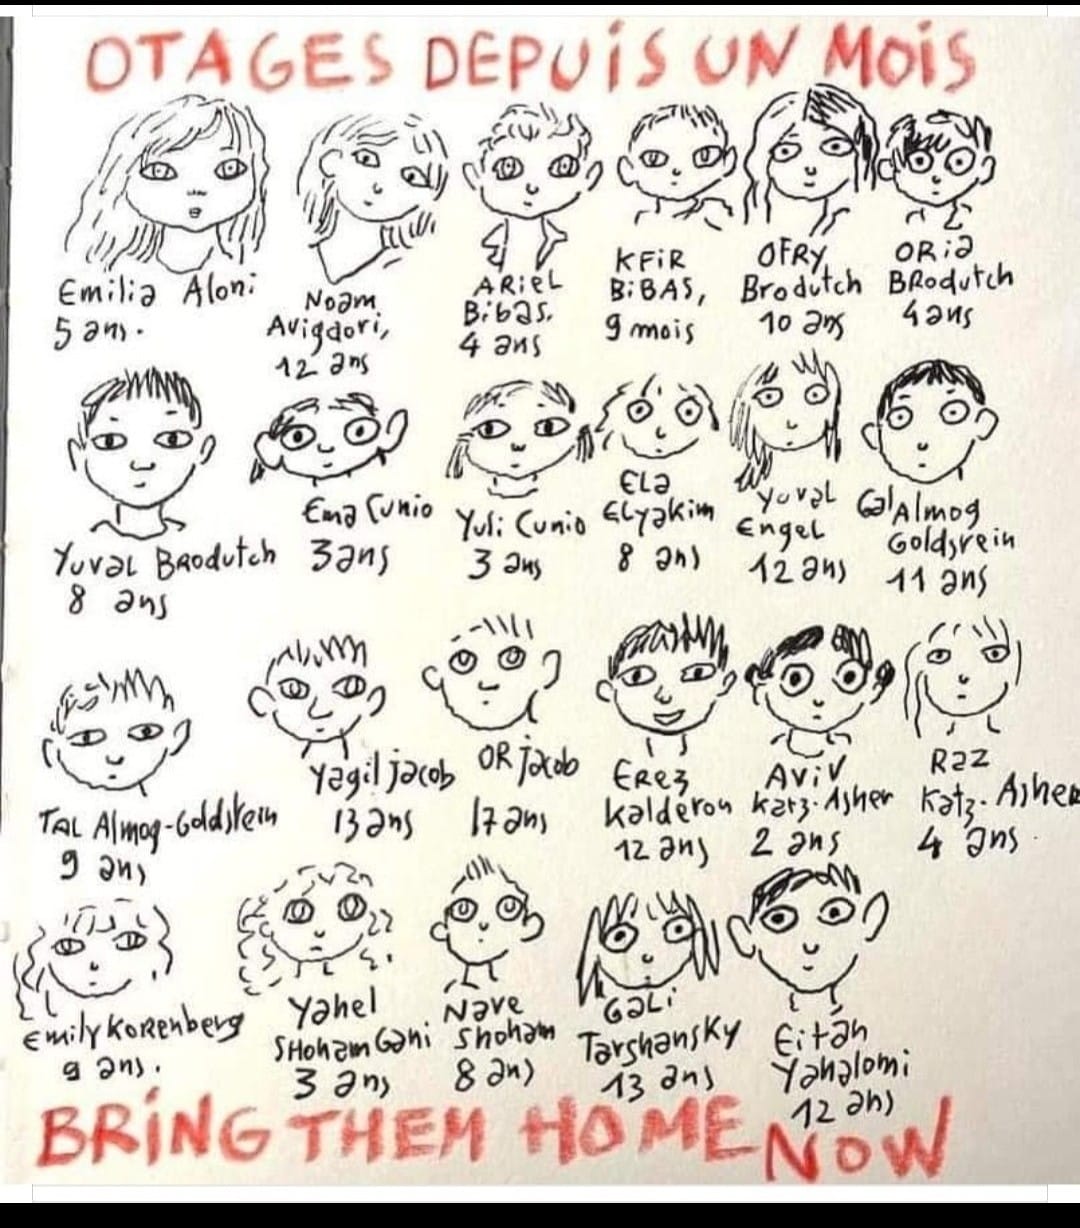 OTAGES DEPUIS UN MOIS
Emilia Aloni
5 ans.
Noam
Avigdori,
12 ans
ARIEL
Bibas.
4 ans
KFIR
BIBAS,
9 mois
OFRY
Brodutch
10 ans
ORIA
BRodutch
4 ans
Yuval BRodutch
8 ans
Ema Cunio
3 ans
Yuli Cunio
3 ans
ELa
ELyakim
8 ans
Yuval
EngeL
12 ans
Gal Almog
Goldsrein
11 ans
TAL Almog-Goldstein
9 ans
Yagil jacob
13 ans
OR jacob
17 ans
Erez
Kalderon
12 ans
AViV
Katz-Asher
2 ans
Raz
Katz-Asher
4 ans.
Emily Korenberg
9 ans.
Yahel
SHoham Gani
3 ans
Nave
Shoham
8 ans
GaLi
Tarshansky
13 ans
Eitan
Yahalomi
12 ans
BRING THEM HOME NOW